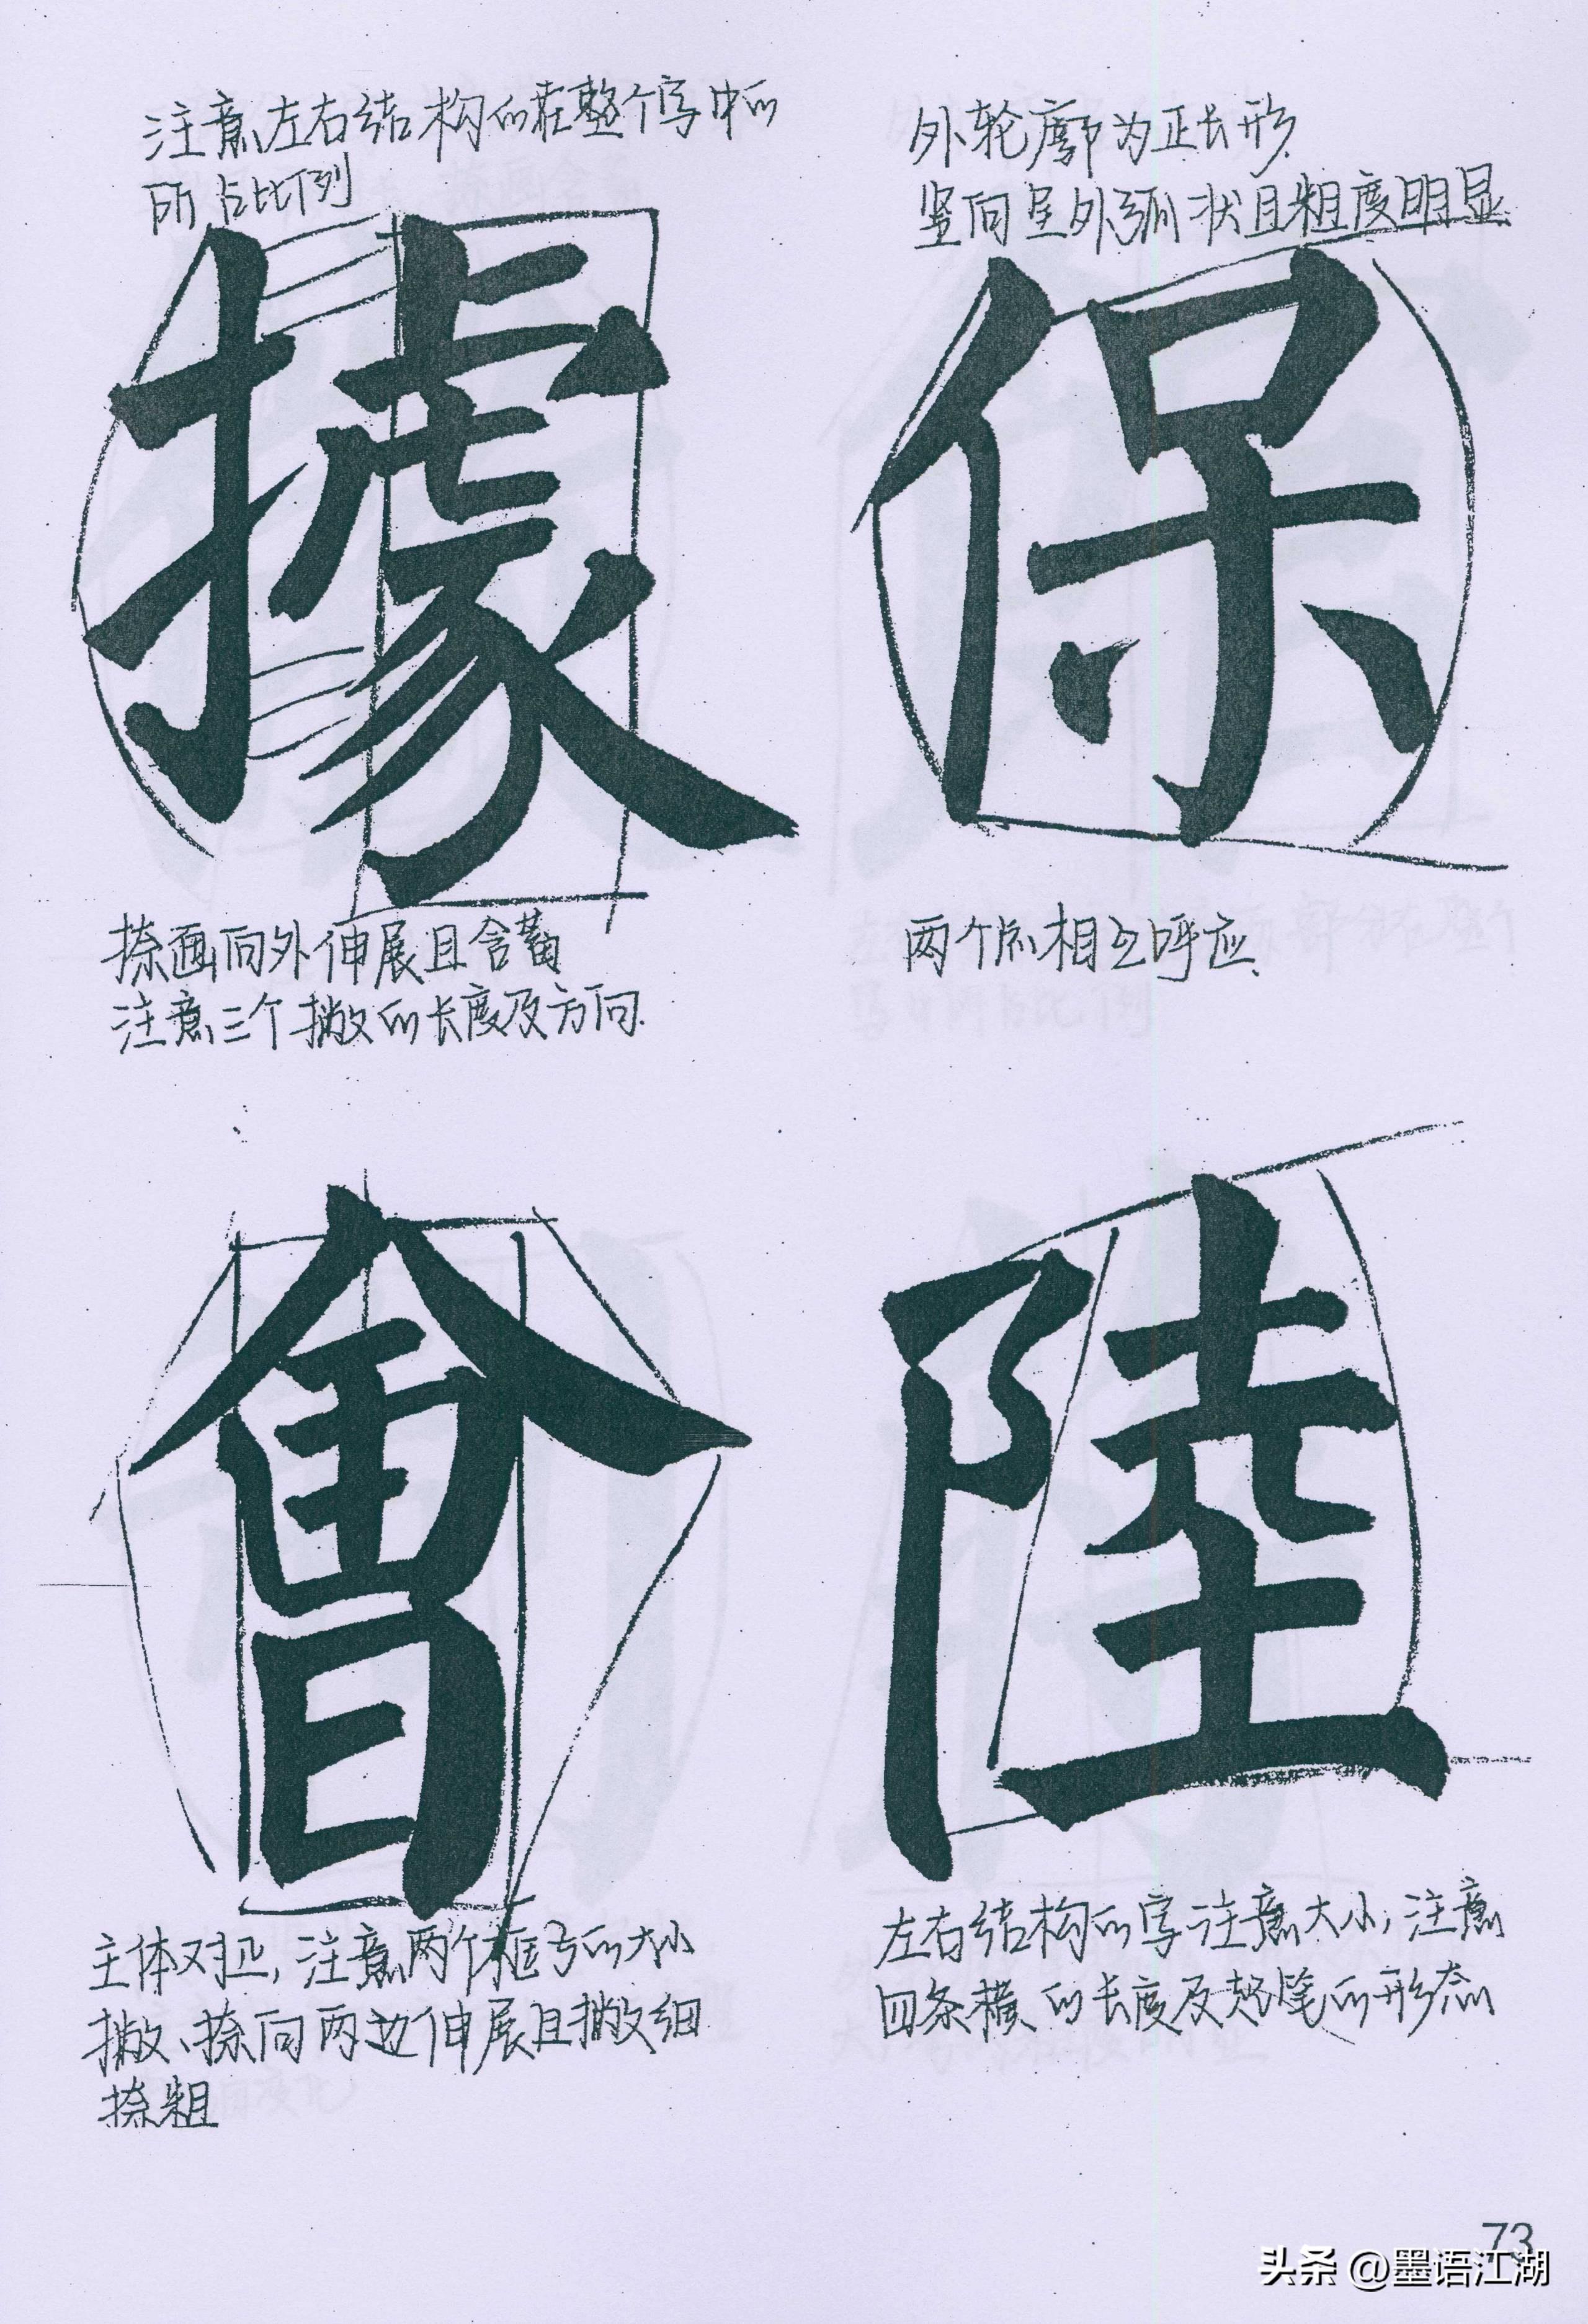 注意左右结构的在整个字中的
所占比例
據
捺画向外伸展且含蓄
注意三个撇的长度及方向.
外轮廓为正长形
竖向呈外弧状且粗度明显
保
两个点相互呼应
會
主体对正,注意两个框号的大小
撇、捺向两边伸展且撇细
捺粗
陸
左右结构的字注意大小,注意
四条横的长度及起笔的形态
73
头条 @墨语江湖